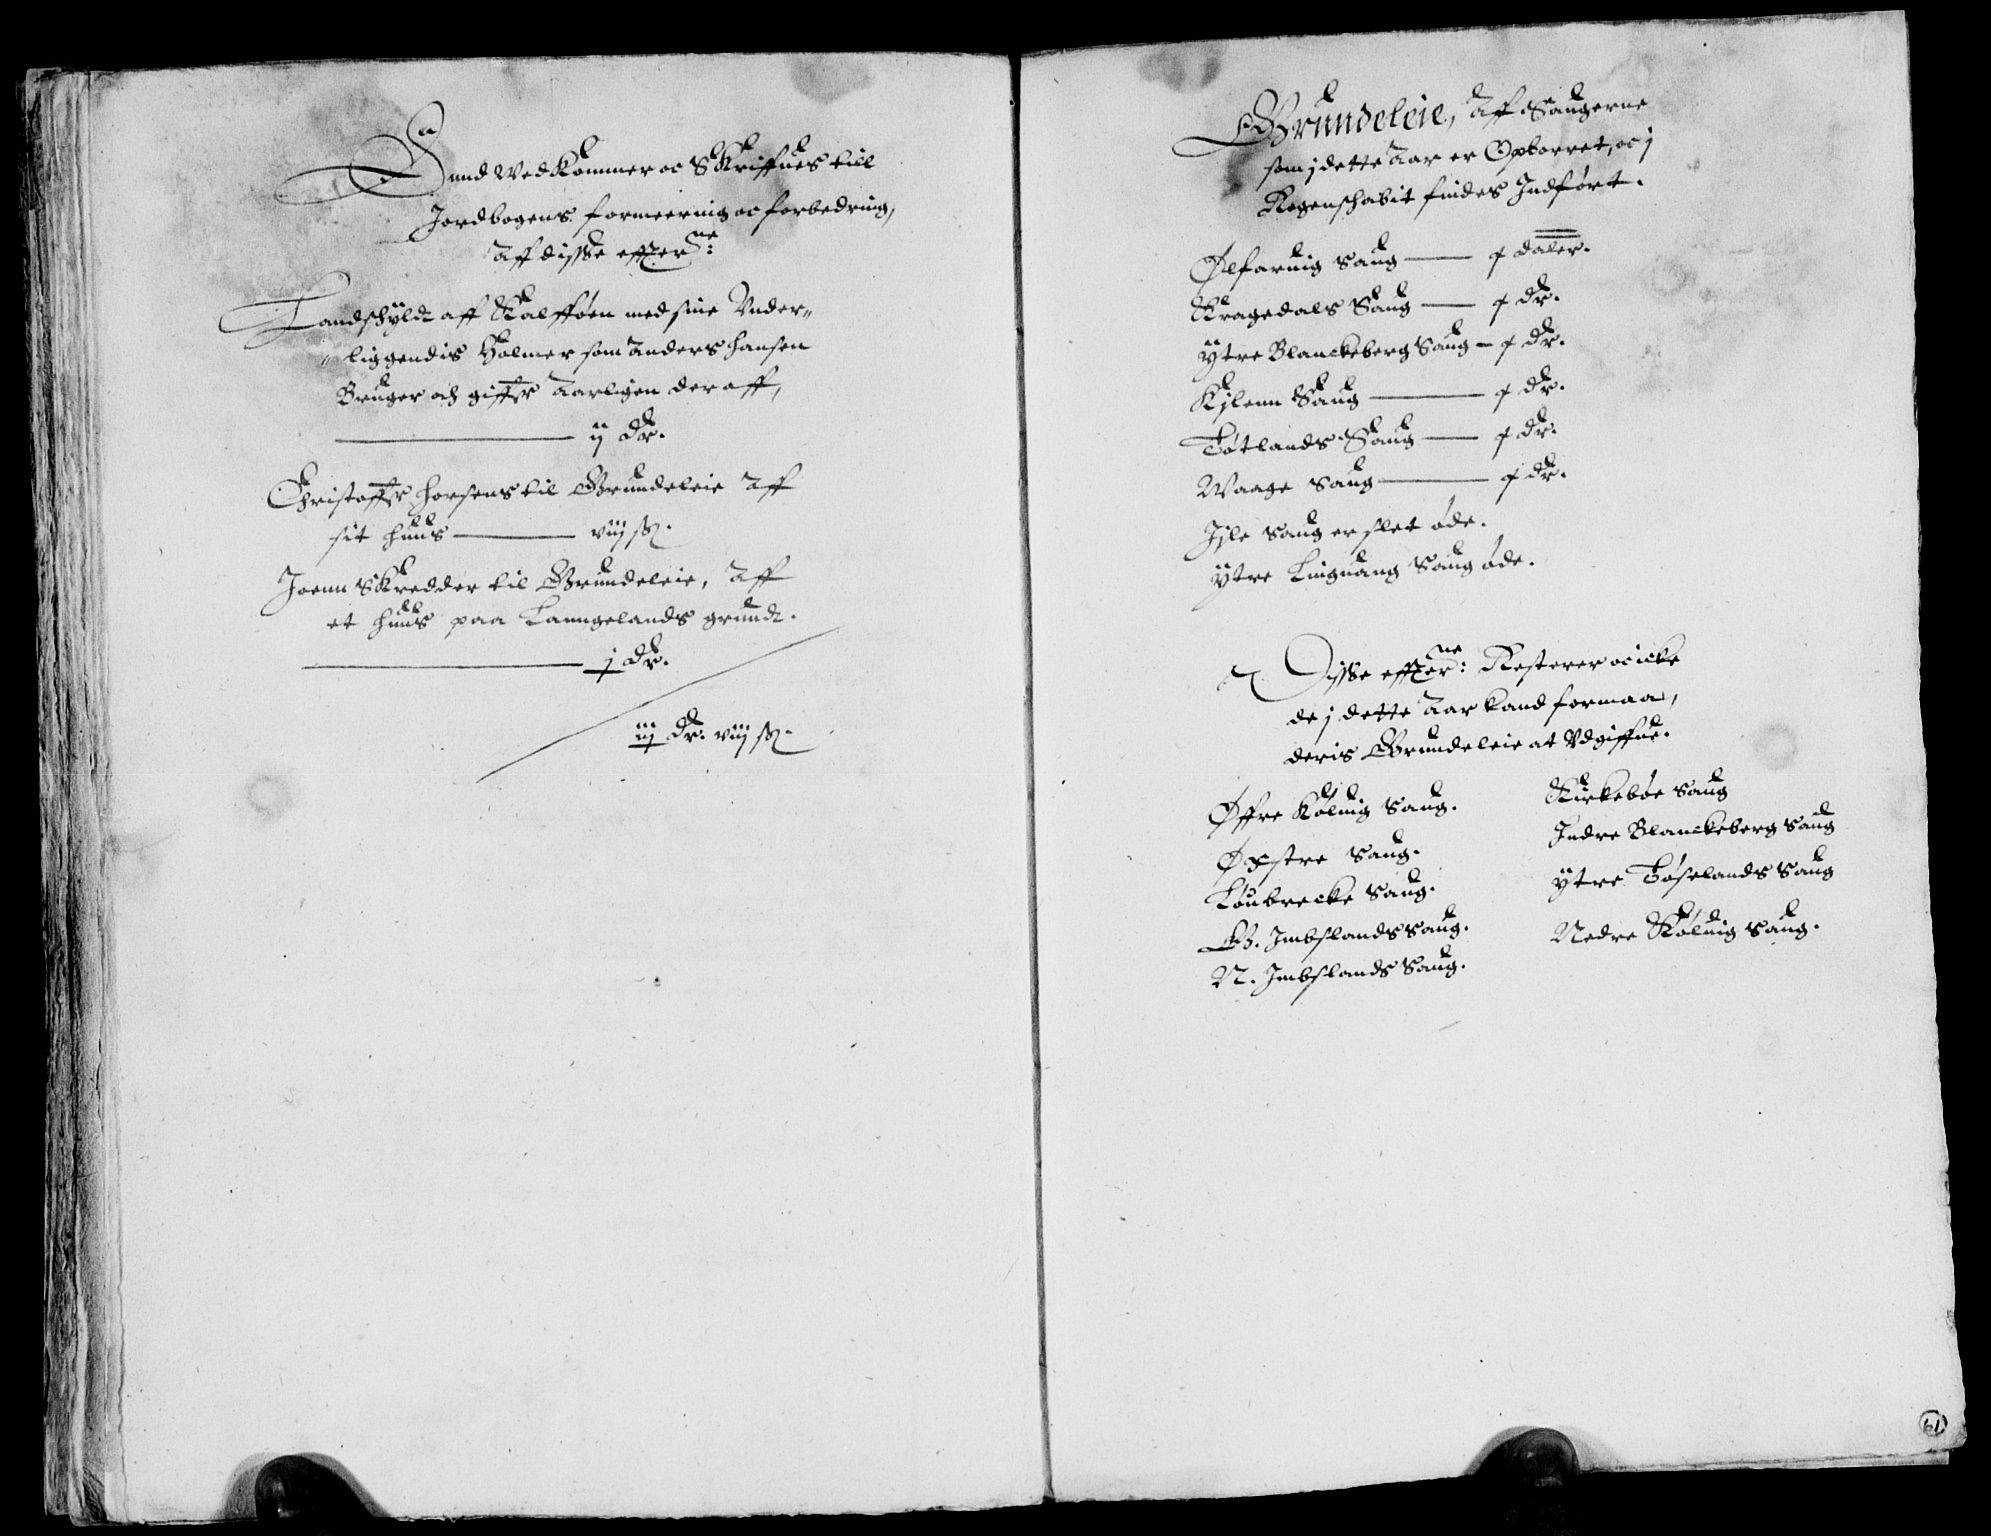 End Wed Kommer oc Skriffues till
Jordbogens formeering oc forbedring,
Aff disse effterne:
Landschÿldt aff Kalfføen med sine Vnder„
„ liggendis Holmer som Anders Hansen
Bruger och giffter Aarligen der aff,
ij Dr.
Christoffer Horsens til Grundeleie Aff
sit Huus — viij ß.
Joenn Skredder til Grundeleie, Aff
et Huus paa Lanngelands grundt.
j Dr.
iij Dr. viij ß.
Grundeleie, Aff Saugerne
som j dette Aar er Opborret, oc j
Regenschabit findes Indført.
Ølfaruig Saug — j daler.
Kragedals Saug — j Dr.
ÿtre Blanckeberg Saug — j Dr.
Kjlenn Saug — j Dr.
Tøtlands Saug — j Dr.
Waage Saug — j Dr.
Jsle Saug er slet øde.
ÿtre Linguang Saug øde.
Disse effterne: Resterer oc icke
de j dette Aar kand formaa,
deris Grundeleie at Vdgiffue.
Øffre Køluig Saug.
Øxstre Saug.
Løubrecke Saug.
Ø. Imbslands Saug.
N. Imbslands Saug.
Kirkebøe Saug
Indre Blanckeberg Saug
ÿtre Tøselands Saug
Nedre Køluig Saug.
61